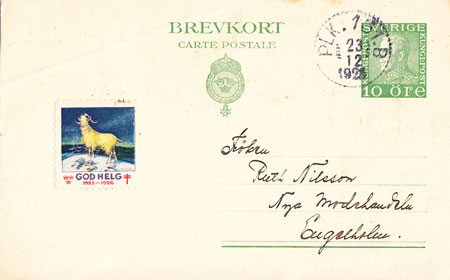 BREVKORT
CARTE POSTALE
SVERIGE
10 ÖRE
PLK. 1
23
12
GOD HELG
1925-1926
Fröken
Ruth Nilsson
Nya Modehandeln
Engelholm.